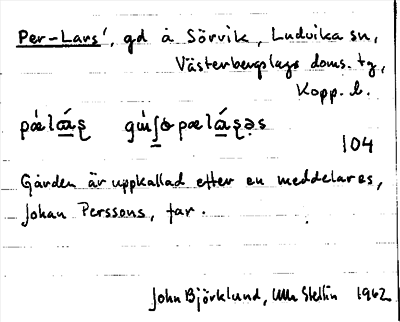 Per-Lars', gd å Sörvik, Ludvika sn,
Västerbergslags doms. tg,
Kopp. l.
104
Gården är uppkallad efter en meddelares,
Johan Perssons, far.
John Björklund, 1962